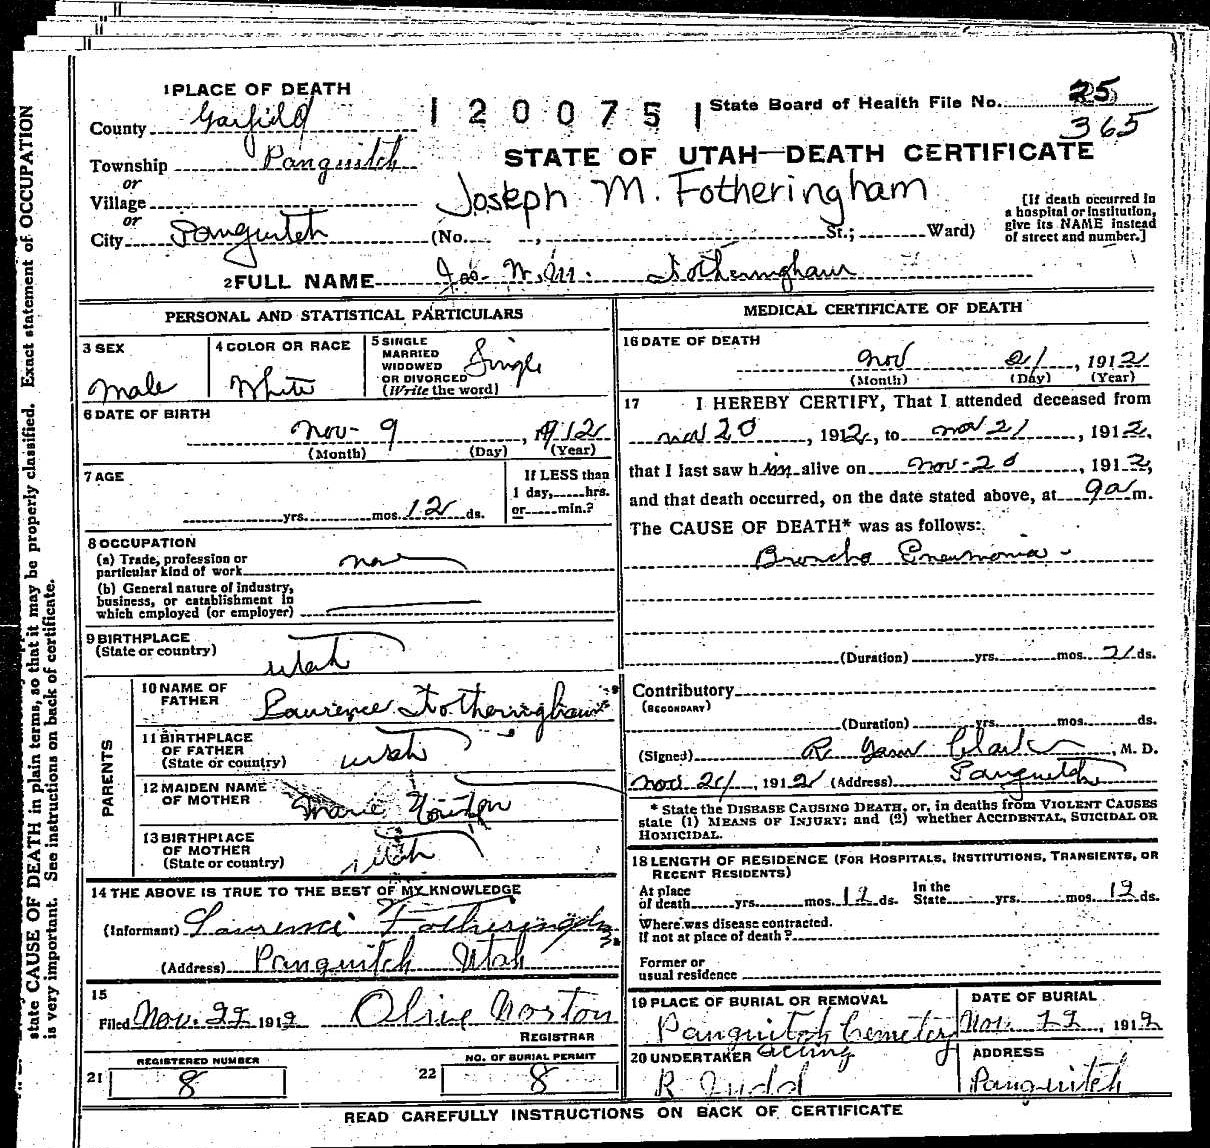 1 PLACE OF DEATH
County Garfield
1 2 0 0 7 5 1
State Board of Health File No. 25
365
Township Panguitch
or
Village
or
City Panguitch
STATE OF UTAH—DEATH CERTIFICATE
Joseph M. Fotheringham
(No. , St.; Ward)
[If death occurred in
a hospital or institution,
give its NAME instead
of street and number.]
2 FULL NAME Jos. Wm. Fotheringham
PERSONAL AND STATISTICAL PARTICULARS
3 SEX
Male
4 COLOR OR RACE
White
5 SINGLE
MARRIED
WIDOWED
OR DIVORCED
(Write the word)
Single
6 DATE OF BIRTH
Nov- 9, 1912
(Month) (Day) (Year)
7 AGE
yrs. mos. 12 ds.
If LESS than
1 day, hrs.
or min.?
8 OCCUPATION
(a) Trade, profession or
particular kind of work
(b) General nature of industry,
business, or establishment in
which employed (or employer)
9 BIRTHPLACE
(State or country)
Utah
PARENTS
10 NAME OF
FATHER
Laurence Fotheringham
11 BIRTHPLACE
OF FATHER
(State or country)
Utah
12 MAIDEN NAME
OF MOTHER
Marie
13 BIRTHPLACE
OF MOTHER
(State or country)
Utah
14 THE ABOVE IS TRUE TO THE BEST OF MY KNOWLEDGE
(Informant) Laurence Fotheringham
(Address) Panguitch Utah
15
Filed Nov. 22 1912 Olive Norton
REGISTRAR
REGISTERED NUMBER
21 8
NO. OF BURIAL PERMIT
22 8
MEDICAL CERTIFICATE OF DEATH
16 DATE OF DEATH
Nov 21, 1912
(Month) (Day) (Year)
17 I HEREBY CERTIFY, That I attended deceased from
Nov 20, 1912, to Nov 21, 1912,
that I last saw him alive on Nov-20, 1912,
and that death occurred, on the date stated above, at 9 a m.
The CAUSE OF DEATH* was as follows:
Broncho Pneumonia -
(Duration) yrs. mos. 2 ds.
Contributory
(SECONDARY)
(Duration) yrs. mos. ds.
(Signed) R. Clark, M. D.
Nov 21, 1912 (Address) Panguitch
* State the DISEASE CAUSING DEATH, or, in deaths from VIOLENT CAUSES
state (1) MEANS OF INJURY; and (2) whether ACCIDENTAL, SUICIDAL OR
HOMICIDAL.
18 LENGTH OF RESIDENCE (FOR HOSPITALS, INSTITUTIONS, TRANSIENTS, OR
RECENT RESIDENTS)
At place
of death yrs. mos. 12 ds.
In the
State yrs. mos. 12 ds.
Where was disease contracted.
If not at place of death?
Former or
usual residence
19 PLACE OF BURIAL OR REMOVAL
Panguitch Cemetery
DATE OF BURIAL
Nov. 22, 1912
20 UNDERTAKER acting
R Judd
ADDRESS
Panguitch
READ CAREFULLY INSTRUCTIONS ON BACK OF CERTIFICATE
state CAUSE OF DEATH in plain terms, so that it may be properly classified. Exact statement of OCCUPATION
is very important. See instructions on back of certificate.